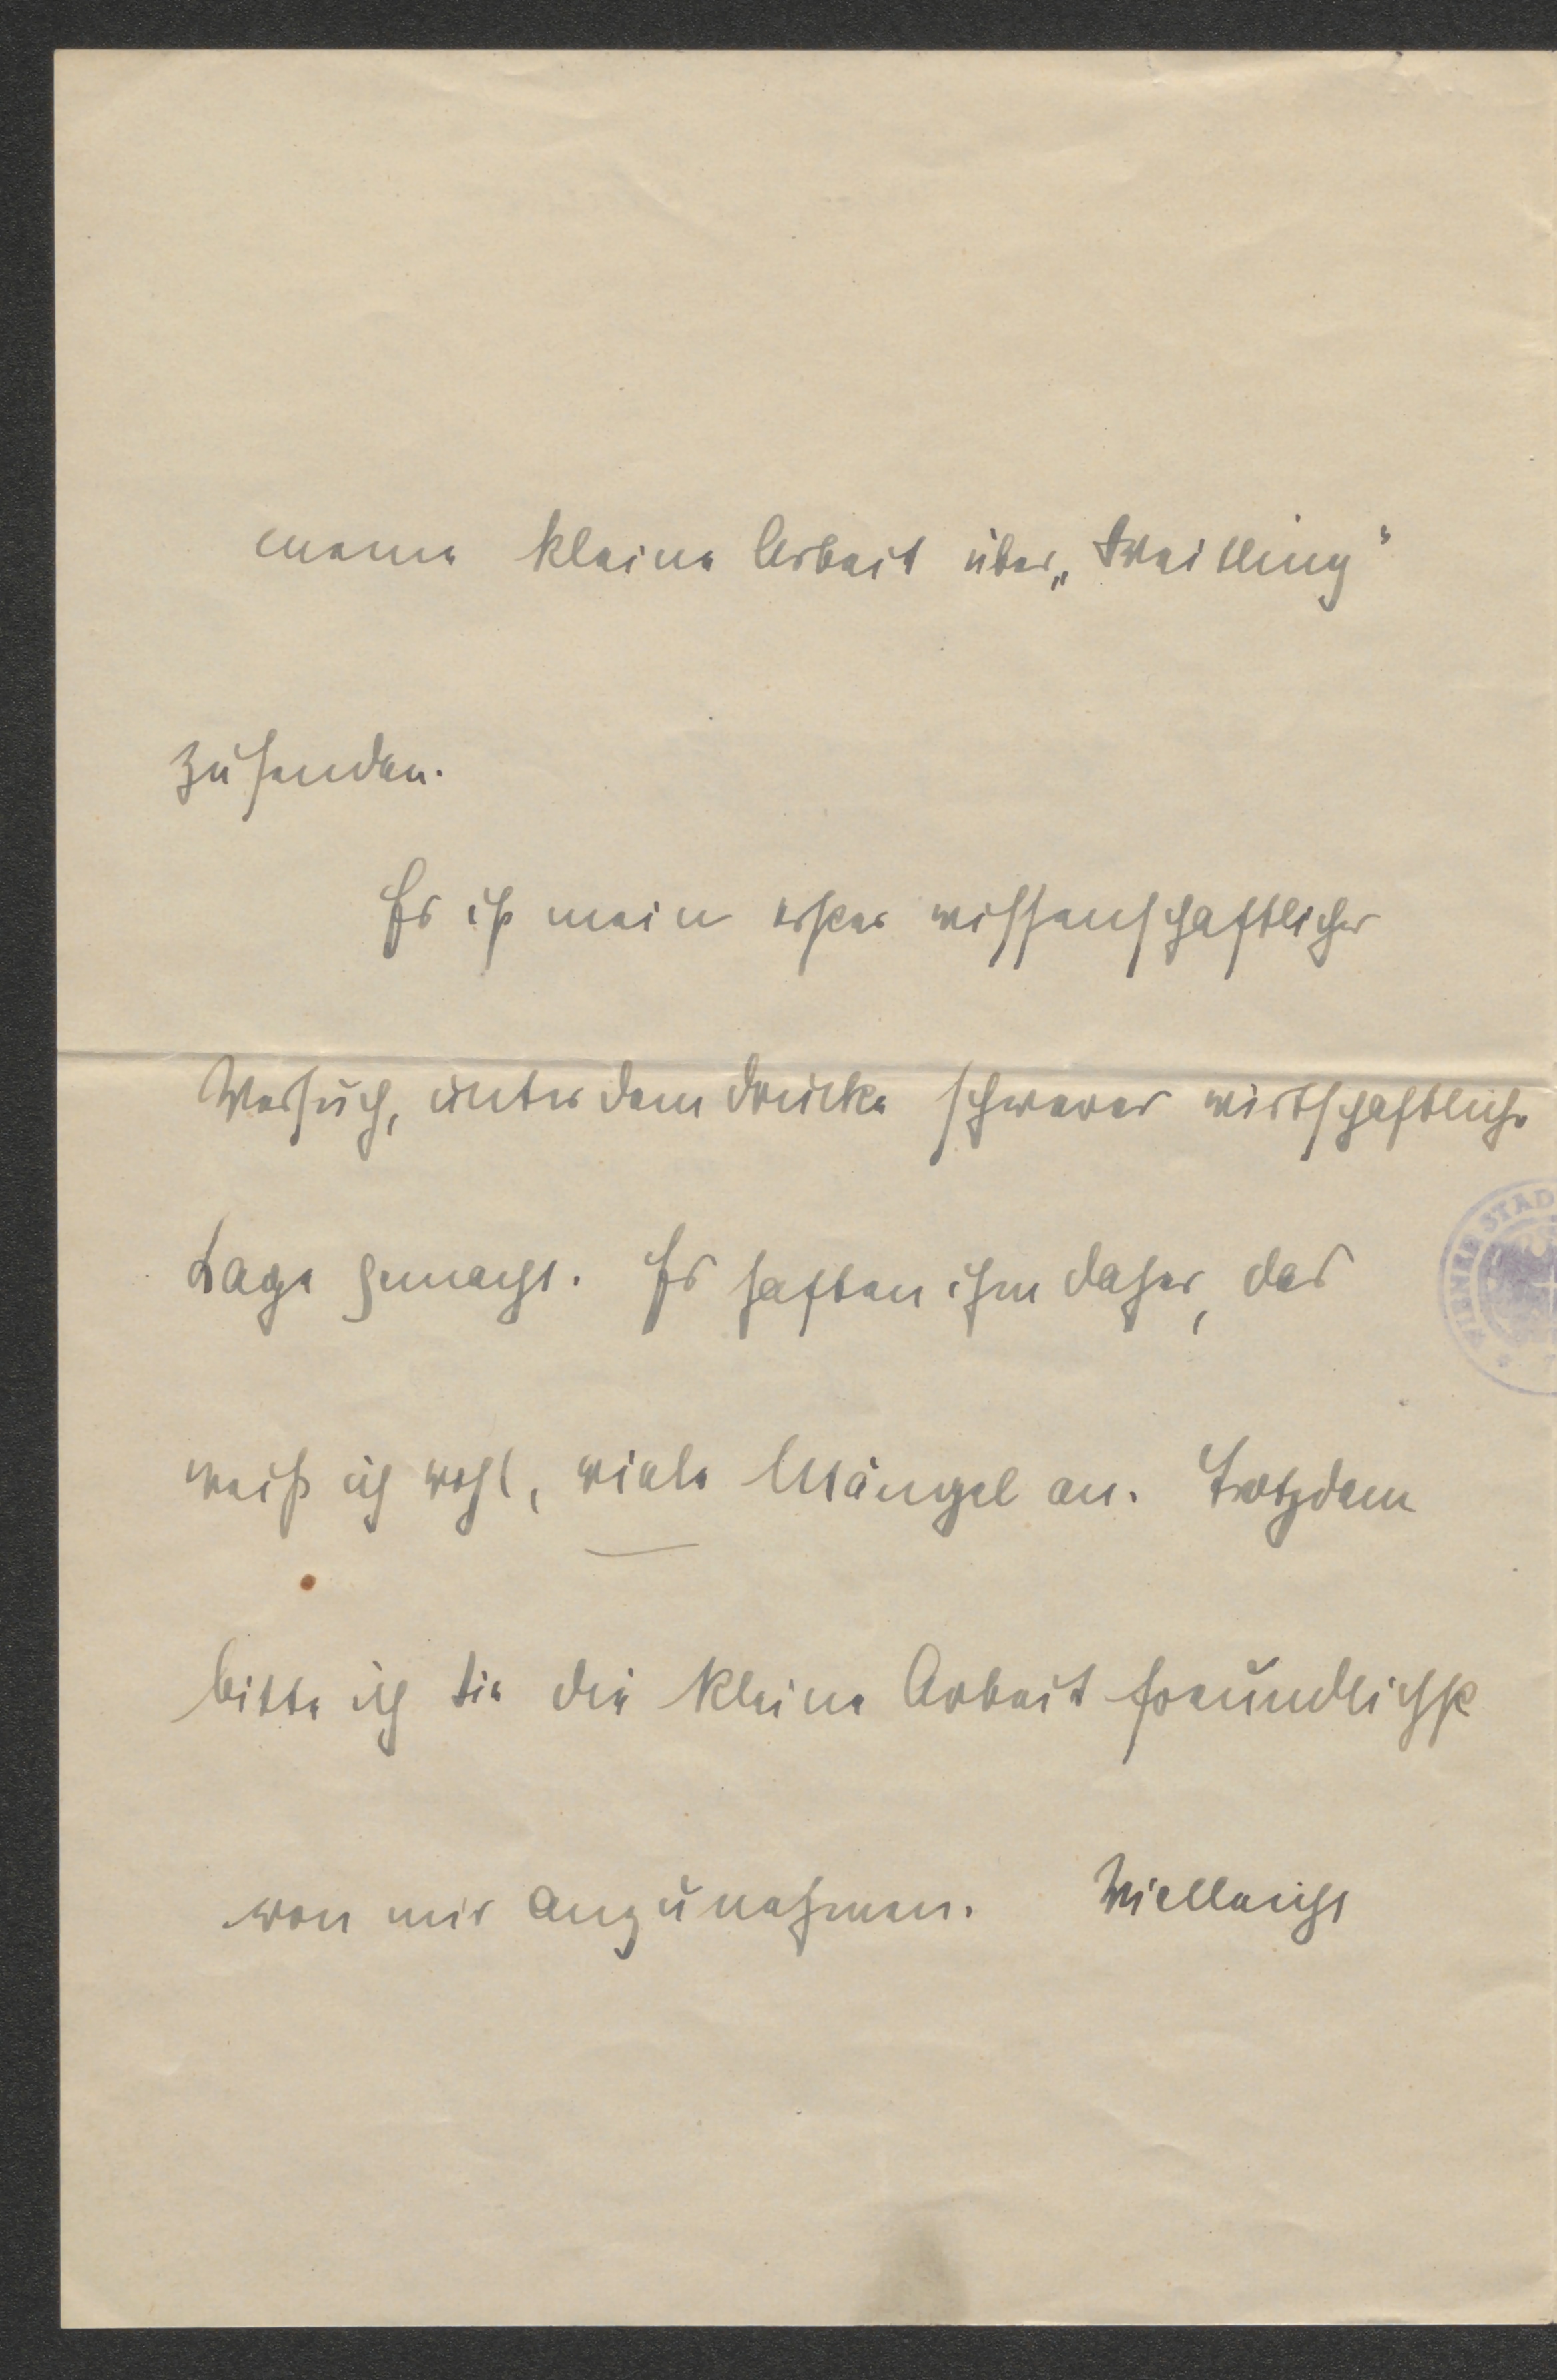 meine kleine Arbeit über „Weitling“
zusenden.
Es ist mein erster wissenschaftlicher
Versuch, unter dem Drucke schwerer wirtschaftlicher
Lage gemacht. Es haften ihm daher, das
weiß ich wohl, viele Mängel an. Trotzdem
bitte ich Sie die kleine Arbeit freundlichst
von mir anzunehmen. Vielleicht
WIENER STAD